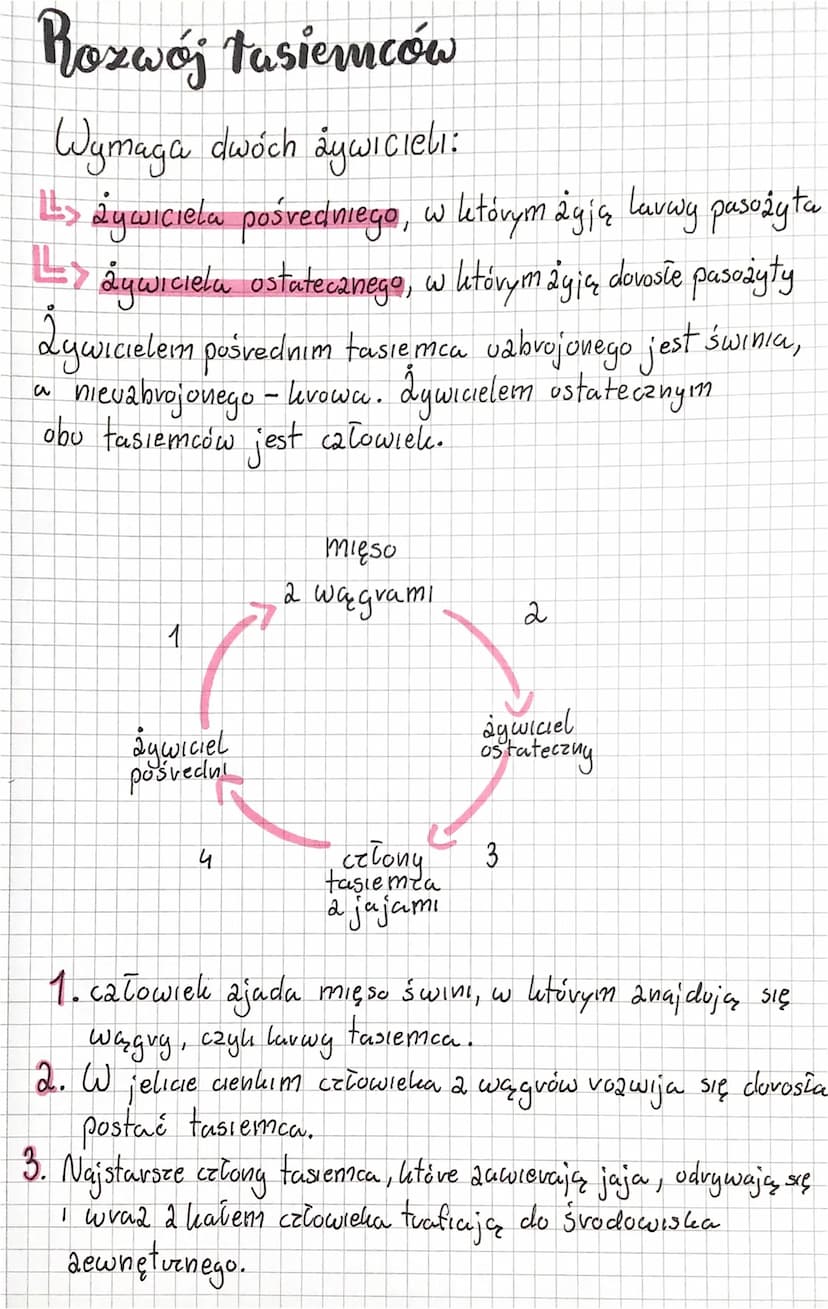 Rozwój tasiemców
Wymaga dwóch żywicieli:
żywiciela pośredniego, w którym żyją larwy pasożyta
żywiciela ostatecznego, w którym żyją dorosłe pasożyty
Żywicielem pośrednim tasiemca uzbrojonego jest świnia,
a nieuzbrojonego - krowa. Żywicielem ostatecznym
obu tasiemców jest człowiek.
mięso
z wągrami
1
2
żywiciel
ostateczny
żywiciel
pośredni
4
3
człony
tasiemca
z jajami
1. człowiek zjada mięso świni, w którym znajdują się
wągry, czyli larwy tasiemca.
2. W jelicie cienkim człowieka z wągrów rozwija się dorosła
postać tasiemca.
3. Najstarsze człony tasiemca, które zawierają jaja, odrywają się
i wraz z kałem człowieka trafiają do środowiska
zewnętrznego.